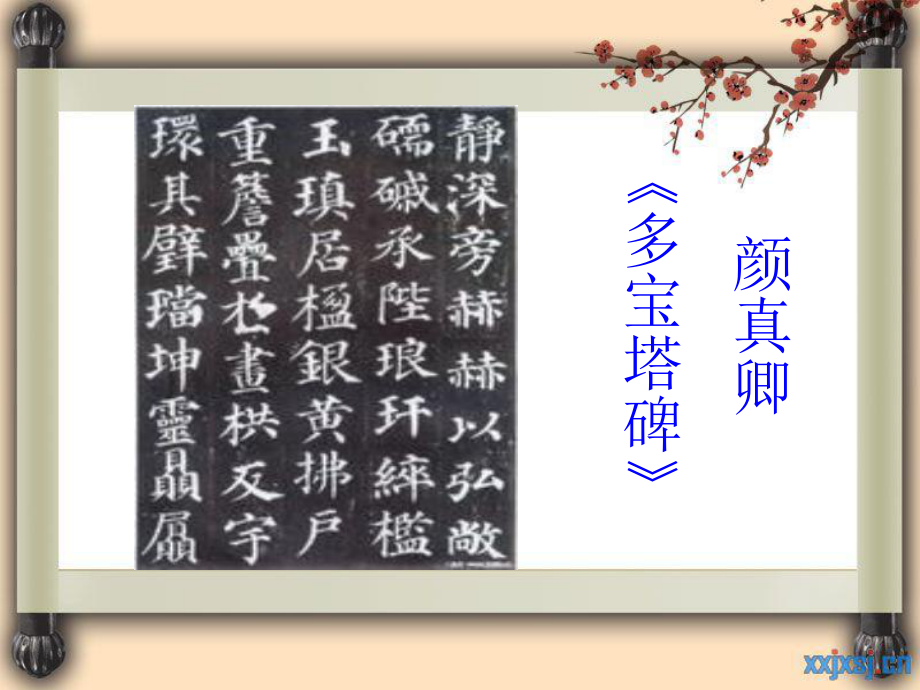 颜真卿
《多宝塔碑》
靜深旁赫赫以弘敞
礝磩承陛琅玕綷檻
玉瑱居楹銀黃拂戶
重簷疊於畫栱反宇
環其璧璫坤靈贔屭
xxjxsj.cn